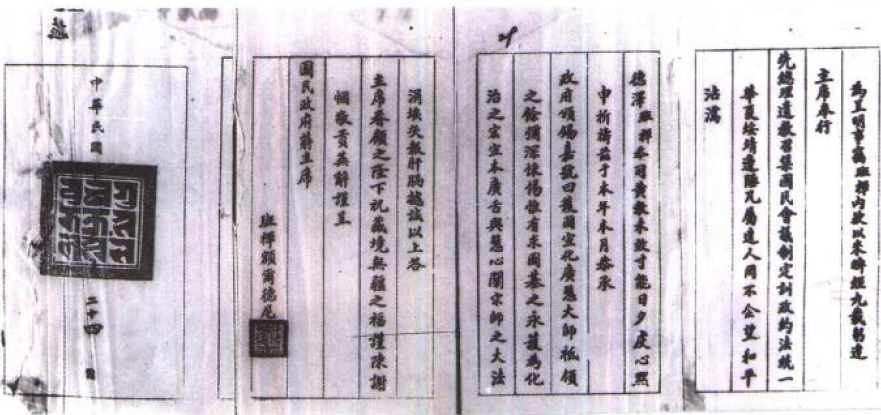 為呈明事竊班禪內嚮以來時經九載躬逢
主席奉行
先總理遺教召集國民會議制定訓政約法統一
華夏綏靖邊陲凡屬邊人同不企望和平
沾濡
德澤班禪忝司黃教未效寸能日夕虔心默
申祈禱茲于本年本月恭承
政府頒錫嘉號曰護國宣化廣慧大師祗領
之餘彌深悚惕惟有求國基之永護為化
治之宏宣本廣舌與慧心闡宗師之大法
涓埃矢報肝腸攄誠以上答
主席眷顧之隆下祝藏境無疆之福謹陳謝
悃敬貢蕪辭謹呈
國民政府蔣主席
班禪額爾德尼
中華民國
二十四 日